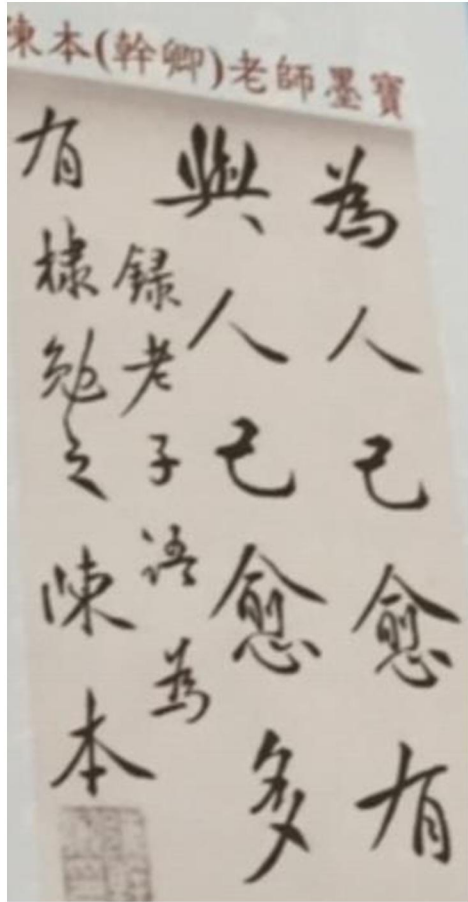 陳本(幹卿)老師墨寶
為人己愈有
與人己愈多
錄老子語為
有棣勉之陳本